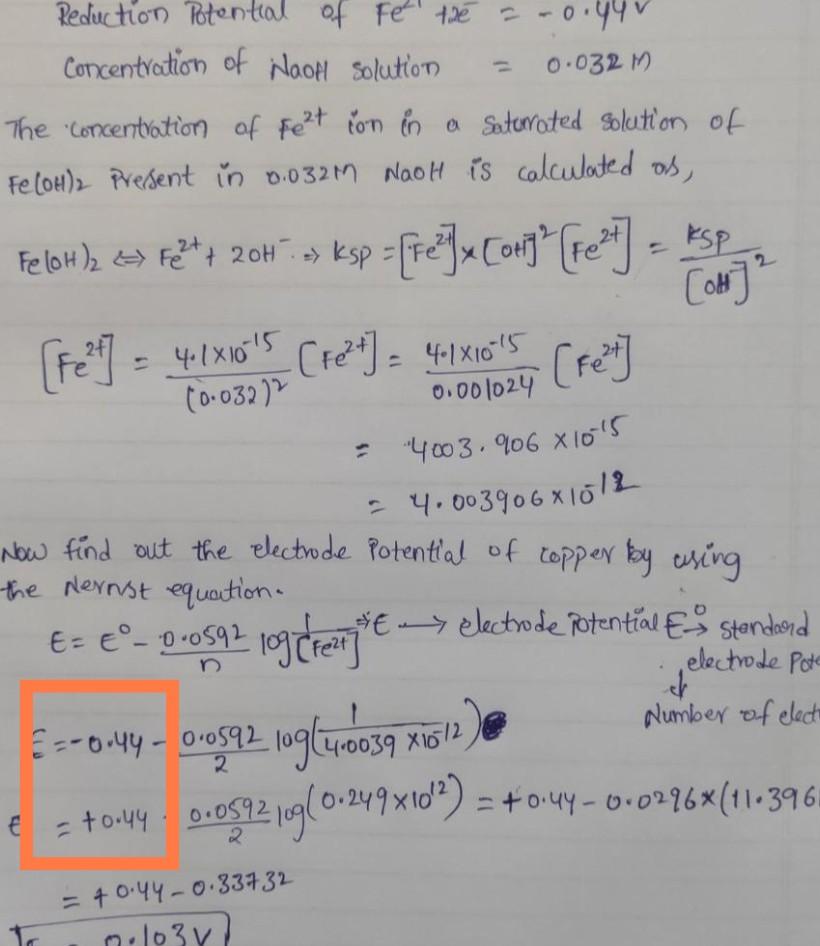 Reduction Potential of Fe²⁺ +2e⁻ = -0.44V
Concentration of NaOH solution = 0.032 M
The concentration of Fe²⁺ ion in a saturated solution of
Fe(OH)₂ Present in 0.032M NaOH is calculated as,
Fe(OH)₂ ⇔ Fe²⁺ + 2OH⁻ ⇒ Ksp = [Fe²⁺]×[OH]² [Fe²⁺] = Ksp/[OH]²
[Fe²⁺] = 4.1×10⁻¹⁵/(0.032)² [Fe²⁺] = 4.1×10⁻¹⁵/0.001024 [Fe²⁺]
= 4003.906 ×10⁻¹⁵
= 4.003906×10⁻¹²
Now find out the electrode Potential of copper by using
the Nernst equation.
E = E⁰ - 0.0592/n log 1/[Fe²⁺] ⇒ E → electrode Potential E⁰→ standard
electrode
Number of
E = -0.44 - 0.0592/2 log(1/4.0039 ×10⁻¹²)
E = +0.44 - 0.0592/2 log(0.249×10¹²) = +0.44 - 0.0296×(11.396
= +0.44 - 0.33732
0.103V